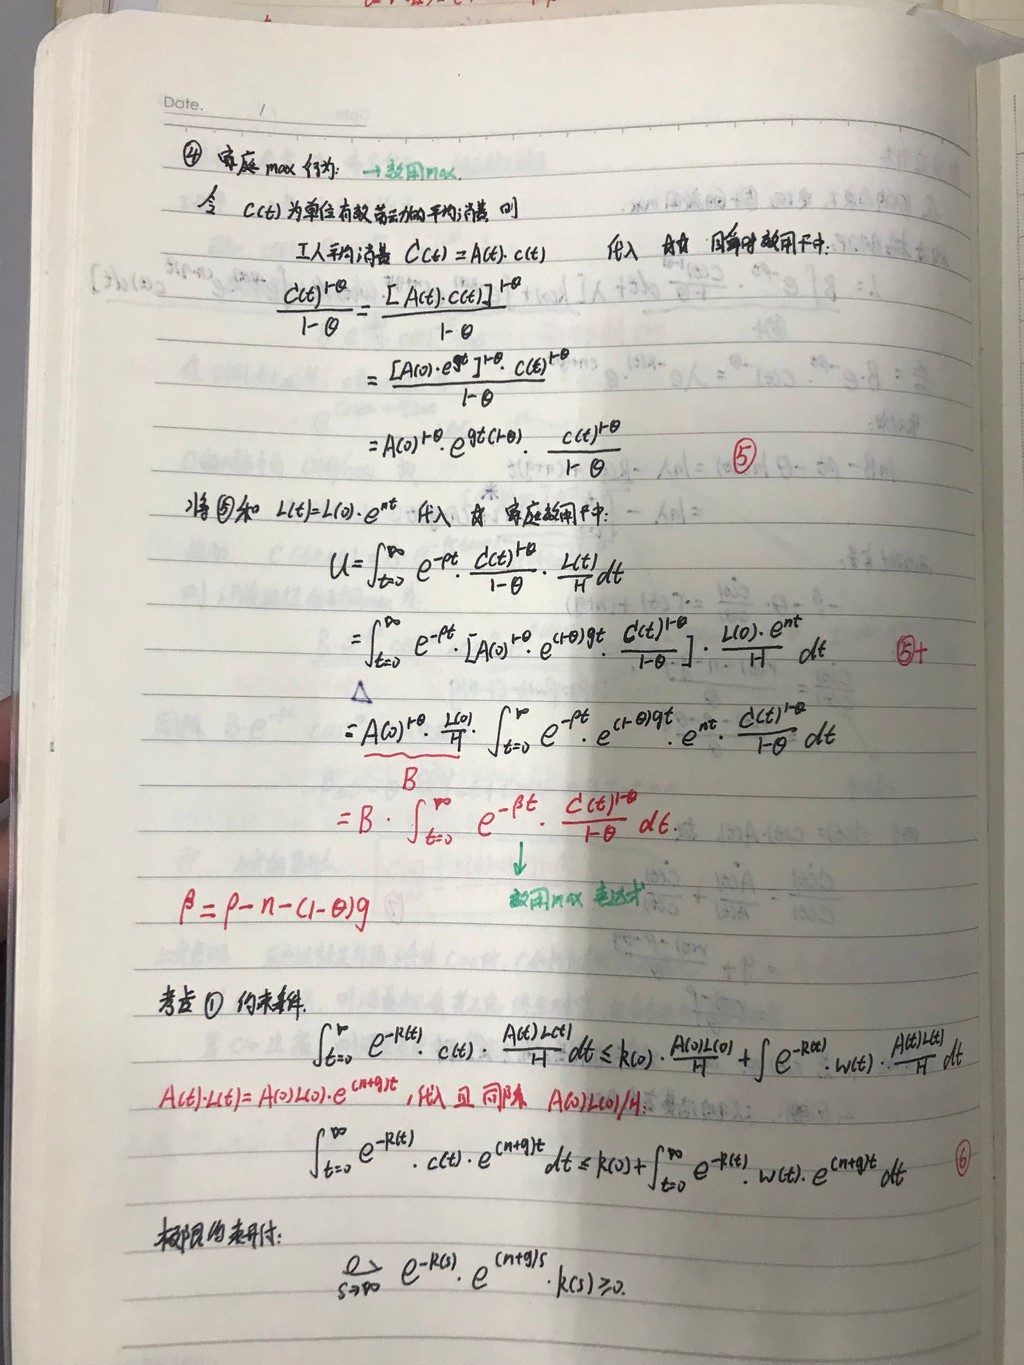 Date. /
④ 家庭max行为: →效用max.
令 c(t)为单位有效劳动的平均消费 则
工人平均消费 C(t)=A(t)·c(t) 代入 瞬时效用F中:
C(t)^{1-θ}/(1-θ) = [A(t)·c(t)]^{1-θ}/(1-θ)
= [A(0)·e^{gt}]^{1-θ}·c(t)^{1-θ}/(1-θ)
= A(0)^{1-θ}·e^{gt(1-θ)}·c(t)^{1-θ}/(1-θ) ⑤
将⑤和 L(t)=L(0)·e^{nt} 代入 * 家庭效用F中:
U=∫_{t=0}^{∞} e^{-ρt}·C(t)^{1-θ}/(1-θ)·L(t)/H dt
=∫_{t=0}^{∞} e^{-ρt}·[A(0)^{1-θ}·e^{(1-θ)gt}·C(t)^{1-θ}/(1-θ)]·L(0)·e^{nt}/H dt ⑤+
△
=A(0)^{1-θ}·L(0)/H·∫_{t=0}^{∞} e^{-ρt}·e^{(1-θ)gt}·e^{nt}·C(t)^{1-θ}/(1-θ) dt
B
=B·∫_{t=0}^{∞} e^{-βt}·C(t)^{1-θ}/(1-θ) dt.
↓
效用max 表达式
β=ρ-n-(1-θ)g
考点① 约束条件.
∫_{t=0}^{∞} e^{-R(t)}·c(t)·A(t)L(t)/H dt ≤ k(0)·A(0)L(0)/H + ∫ e^{-R(t)}·w(t)·A(t)L(t)/H dt
A(t)·L(t)=A(0)L(0)·e^{(n+g)t}, 代入且同除 A(0)L(0)/H:
∫_{t=0}^{∞} e^{-R(t)}·c(t)·e^{(n+g)t} dt ≤ k(0)+∫_{t=0}^{∞} e^{-R(t)}·w(t)·e^{(n+g)t} dt ⑥
极限约束
s→∞ e^{-R(s)}·e^{(n+g)s}·k(s)≥0.